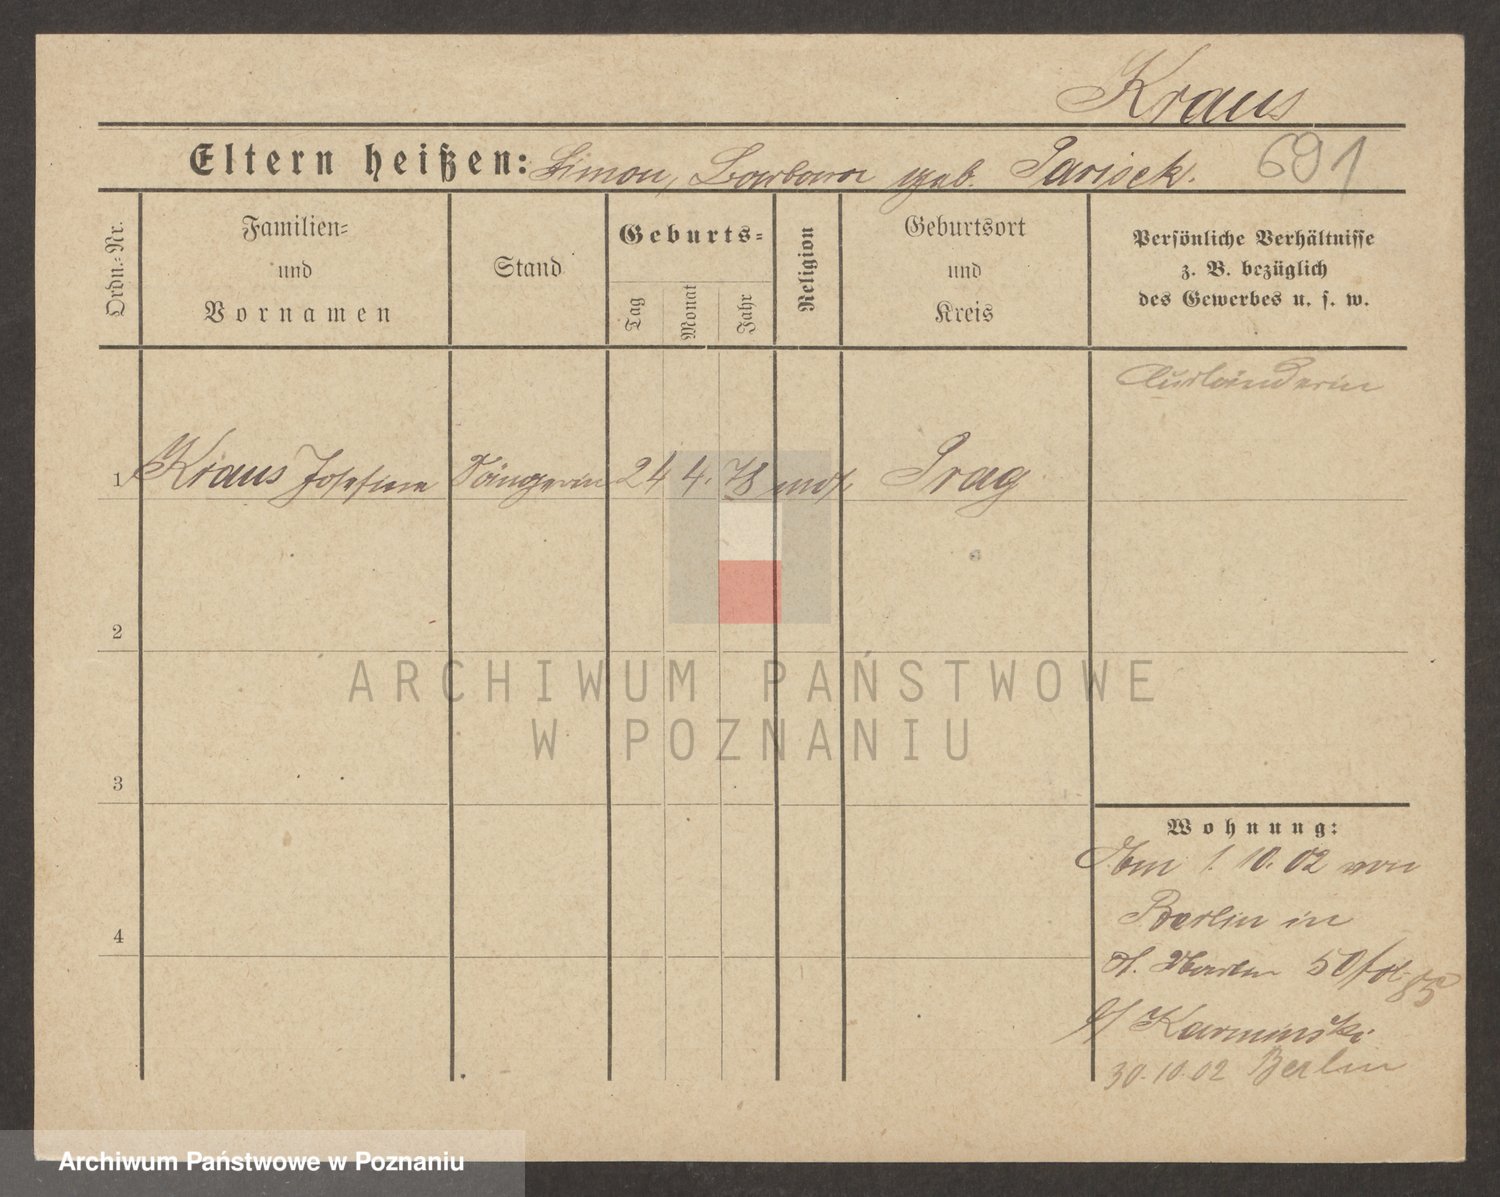 Kraus
Eltern heißen: Simon, Barbara geb. Parisek. 691
Ordn.-Nr.
Familien-
und
Vornamen
Stand
Geburts-
Tag
Monat
Jahr
Religion
Geburtsort
und
Kreis
Persönliche Verhältnisse
z. B. bezüglich
des Gewerbes u. s. w.
Ausländerin
1 Kraus Josefine Sängerin 24 4. 78 Prag
2
3
4
Wohnung:
1. 10. 02 von
Berlin in
50
Karminski
30.10.02 Berlin
ARCHIWUM PAŃSTWOWE
W POZNANIU
Archiwum Państwowe w Poznaniu